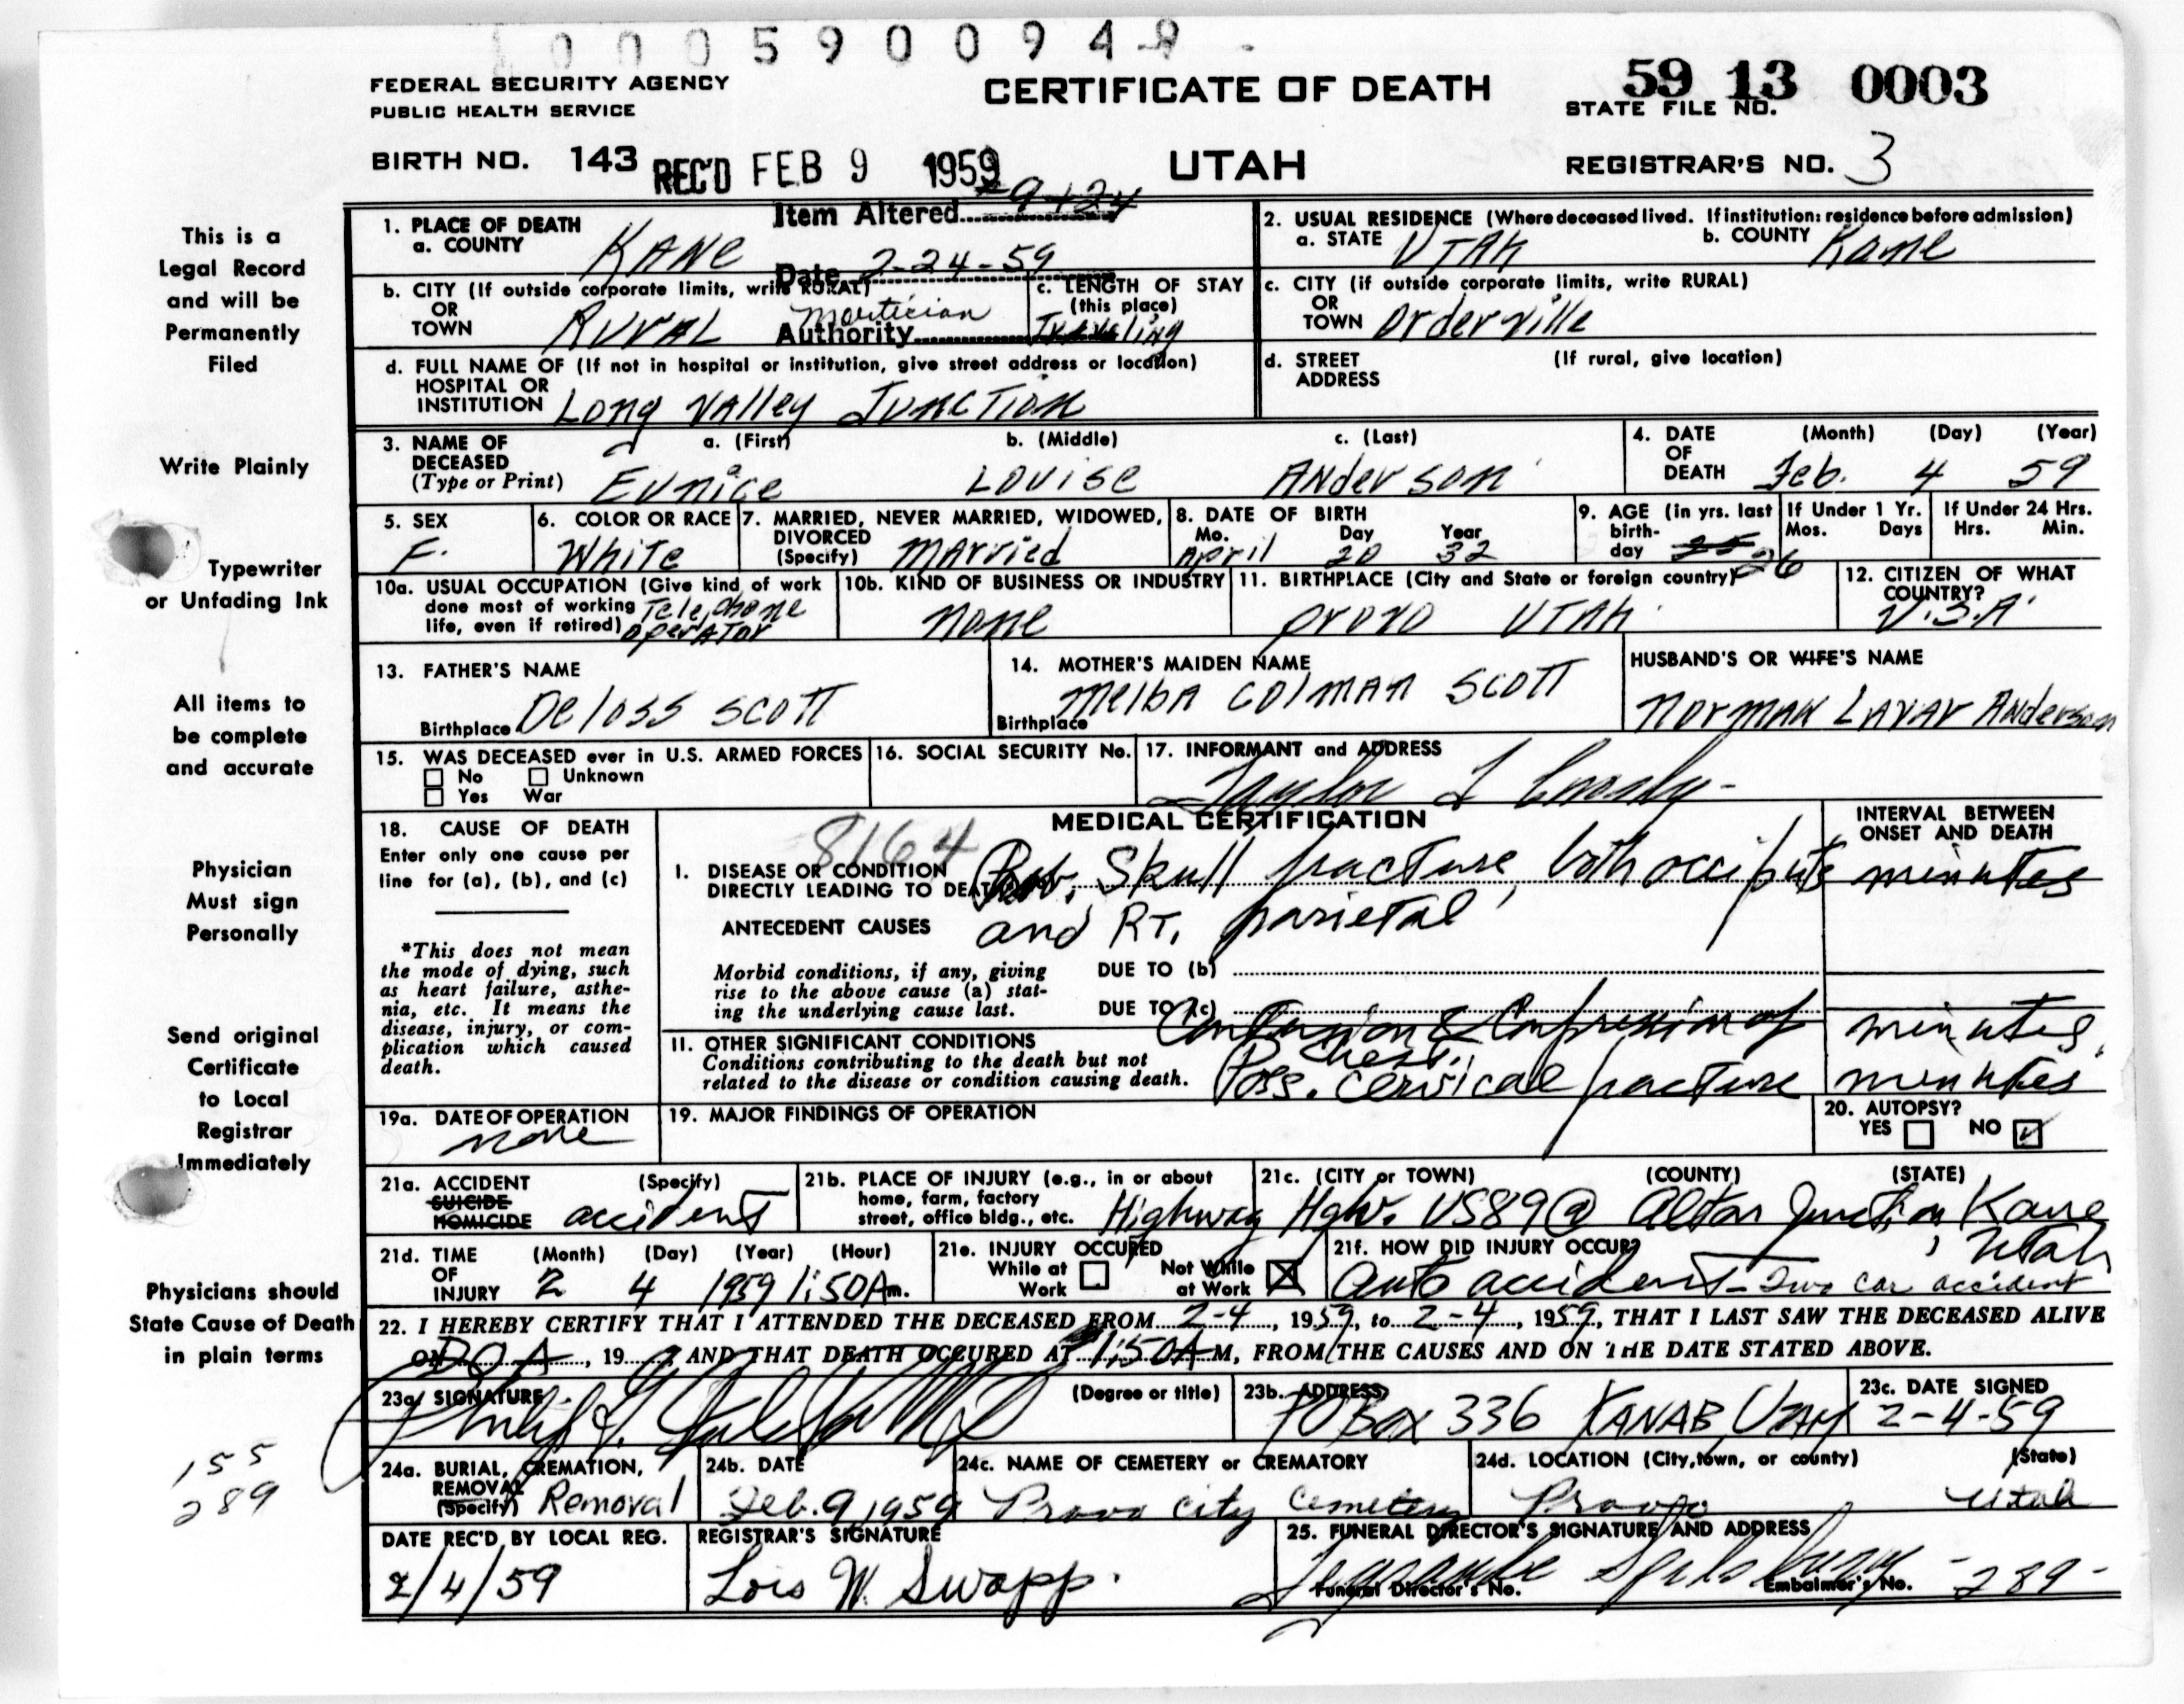 0005900949
FEDERAL SECURITY AGENCY
PUBLIC HEALTH SERVICE
CERTIFICATE OF DEATH
59 13 0003
STATE FILE NO.
BIRTH NO. 143 REC'D FEB 9 1959
UTAH
REGISTRAR'S NO. 3
This is a
Legal Record
and will be
Permanently
Filed
Write Plainly
Typewriter
or Unfading Ink
All items to
be complete
and accurate
Physician
Must sign
Personally
Send original
Certificate
to Local
Registrar
Immediately
Physicians should
State Cause of Death
in plain terms
155
289
Item Altered 9 + 24
Date 2-24-59
Authority mortician
1. PLACE OF DEATH
a. COUNTY KANE
2. USUAL RESIDENCE (Where deceased lived. If institution: residence before admission)
a. STATE UTAH b. COUNTY Kane
b. CITY (If outside corporate limits, write RURAL)
OR
TOWN RURAL
c. LENGTH OF STAY
(this place)
Traveling
c. CITY (if outside corporate limits, write RURAL)
OR
TOWN Orderville
d. FULL NAME OF (If not in hospital or institution, give street address or location)
HOSPITAL OR
INSTITUTION Long Valley Junction
d. STREET (If rural, give location)
ADDRESS
3. NAME OF a. (First) b. (Middle) c. (Last)
DECEASED
(Type or Print) Eunice Louise Anderson
4. DATE (Month) (Day) (Year)
OF
DEATH Feb. 4 59
5. SEX
F.
6. COLOR OR RACE
White
7. MARRIED, NEVER MARRIED, WIDOWED,
DIVORCED
(Specify) Married
8. DATE OF BIRTH
Mo. Day Year
April 20 32
9. AGE (in yrs. last
birth-
day 25 26
If Under 1 Yr.
Mos. Days
If Under 24 Hrs.
Hrs. Min.
10a. USUAL OCCUPATION (Give kind of work
done most of working Telephone
life, even if retired) operator
10b. KIND OF BUSINESS OR INDUSTRY
None
11. BIRTHPLACE (City and State or foreign country)
Provo UTAH
12. CITIZEN OF WHAT
COUNTRY?
U.S.A.
13. FATHER'S NAME
Deloss Scott
Birthplace
14. MOTHER'S MAIDEN NAME
Melba Colman Scott
Birthplace
HUSBAND'S OR WIFE'S NAME
Norman LaVar Anderson
15. WAS DECEASED ever in U.S. ARMED FORCES
No Unknown
Yes War
16. SOCIAL SECURITY No.
17. INFORMANT and ADDRESS
Taylor L Crosby
18. CAUSE OF DEATH
Enter only one cause per
line for (a), (b), and (c)
*This does not mean
the mode of dying, such
as heart failure, asthe-
nia, etc. It means the
disease, injury, or com-
plication which caused
death.
MEDICAL CERTIFICATION
8164
INTERVAL BETWEEN
ONSET AND DEATH
I. DISEASE OR CONDITION
DIRECTLY LEADING TO DEATH Prob. Skull fracture, both occiputs minutes
ANTECEDENT CAUSES and RT. parietal
Morbid conditions, if any, giving
rise to the above cause (a) stat-
ing the underlying cause last.
DUE TO (b)
DUE TO (c)
II. OTHER SIGNIFICANT CONDITIONS
Conditions contributing to the death but not
related to the disease or condition causing death.
Contusion & Compression of minutes
Chest.
Poss. cervical fracture minutes
19a. DATE OF OPERATION
none
19. MAJOR FINDINGS OF OPERATION
20. AUTOPSY?
YES NO
21a. ACCIDENT (Specify)
SUICIDE
HOMICIDE accident
21b. PLACE OF INJURY (e.g., in or about
home, farm, factory
street, office bldg., etc. Highway
21c. (CITY or TOWN) (COUNTY) (STATE)
Hgw. US89 @ Alton Junction, Kane
Utah
21d. TIME (Month) (Day) (Year) (Hour)
OF
INJURY 2 4 1959 1:50Am.
21e. INJURY OCCURED
While at Work
Not While at Work
21f. HOW DID INJURY OCCUR?
auto accident - Two car accident
22. I HEREBY CERTIFY THAT I ATTENDED THE DECEASED FROM 2-4, 1959, to 2-4, 1959, THAT I LAST SAW THE DECEASED ALIVE
ON DOA, 19 , AND THAT DEATH OCCURED AT 1:50A M, FROM THE CAUSES AND ON THE DATE STATED ABOVE.
23a. SIGNATURE (Degree or title)
23b. ADDRESS
PO Box 336 KANAB, UTAH
23c. DATE SIGNED
2-4-59
24a. BURIAL, CREMATION,
REMOVAL
(Specify) Removal
24b. DATE
Feb. 9, 1959
24c. NAME OF CEMETERY or CREMATORY
Provo city Cemetery
24d. LOCATION (City, town, or county) (State)
Provo Utah
DATE REC'D BY LOCAL REG.
2/4/59
REGISTRAR'S SIGNATURE
Lois W. Swapp.
25. FUNERAL DIRECTOR'S SIGNATURE AND ADDRESS
Funeral Director's No. Embalmer's No. - 289 -